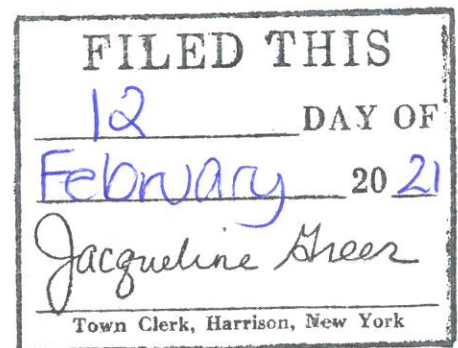 FILED THIS
12 DAY OF
February 20 21
Jacqueline Greer
Town Clerk, Harrison, New York